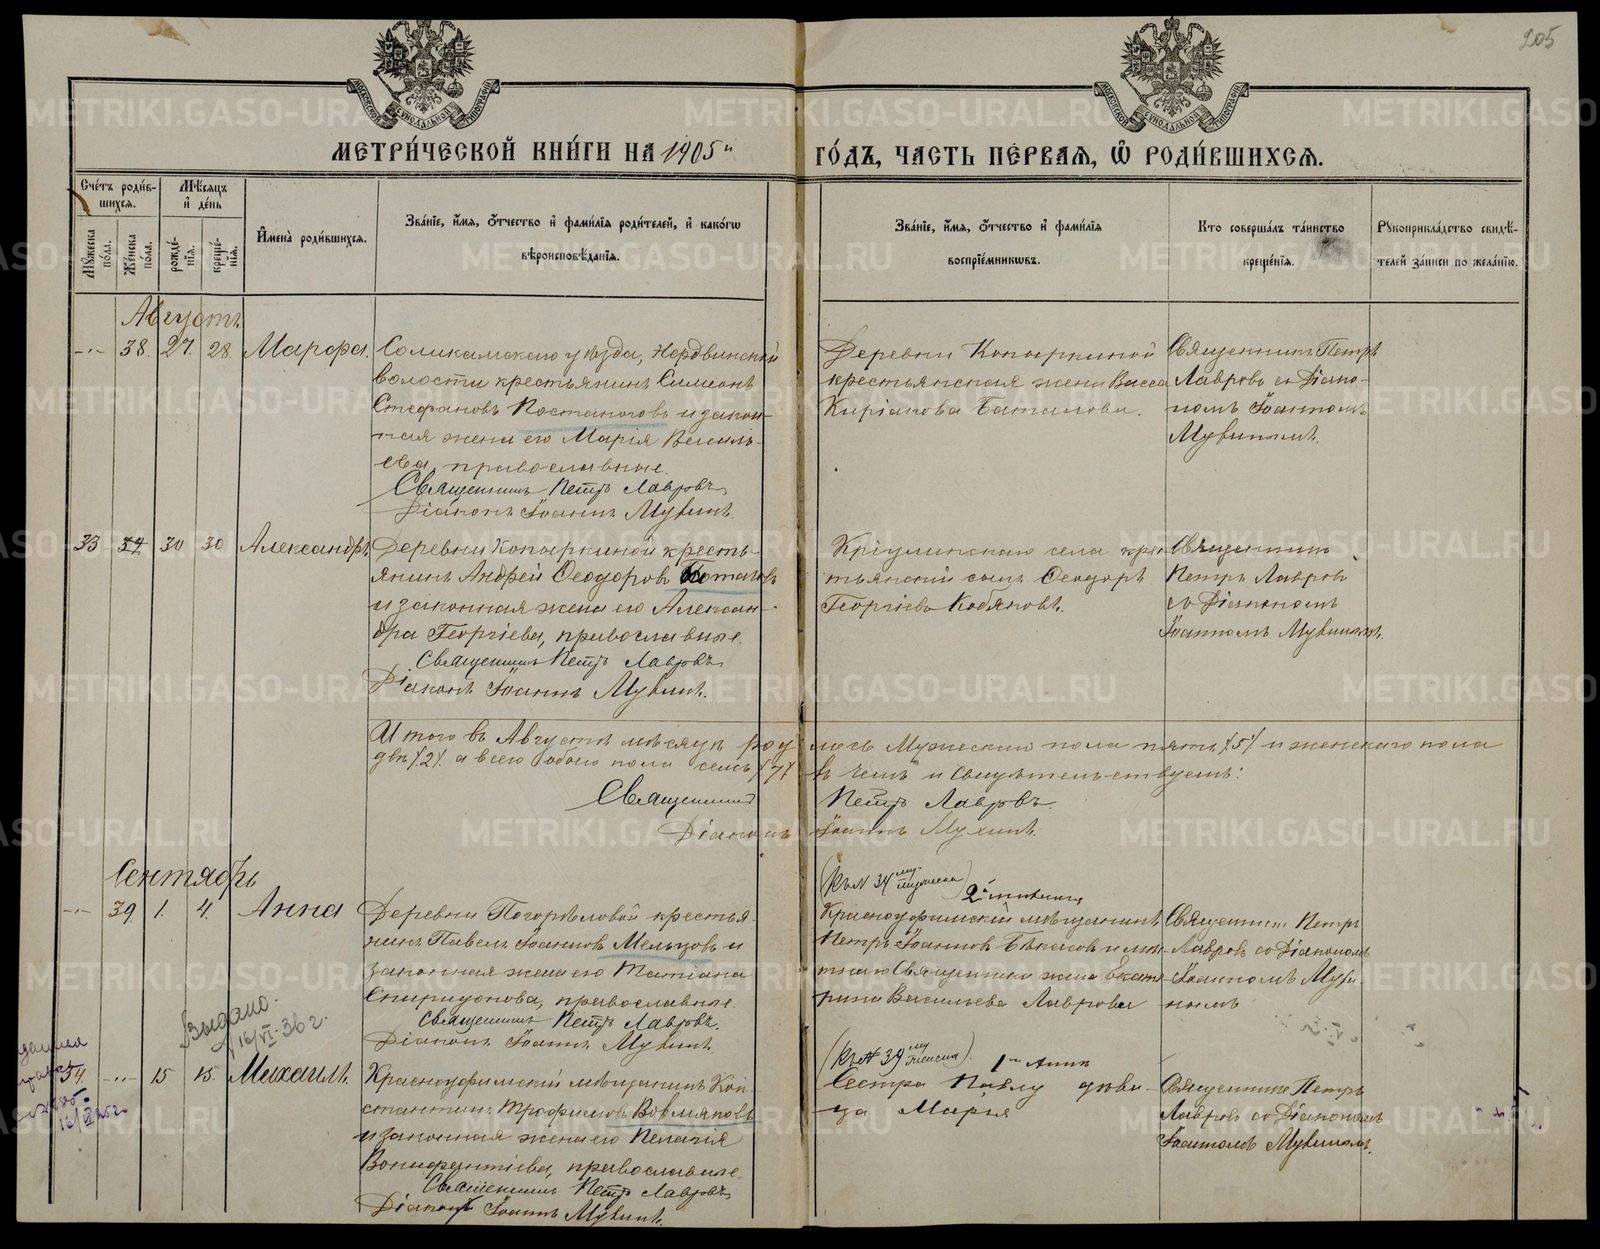 205
МЕТРИ́ЧЕСКОЙ КНИ́ГИ НА 1905й ГО́ДЪ, ЧАСТЬ ПЕ́РВАЯ, Ѡ РОДИ́ВШИХСЯ.
Сче́тъ роди́вшихся.
Мꙋ́жеска по́ла.
Же́нска по́ла.
Мѣ́сяцъ и҆ де́нь
рожде́нїя.
креще́нїя.
И҆мена̀ роди́вшихся.
Зва́нїе, и҆́мя, ѻ҆́тчество и҆ фами́лїя роди́телей, и҆ како́гѡ вѣроисповѣ́данїя.
Зва́нїе, и҆́мя, ѻ҆́тчество и҆ фами́лїя воспрїе́мникѡвъ.
Кто̀ соверша́лъ та́инство креще́нїя.
Рꙋкоприкла́дство свидѣ́телей за́писи по жела́нїю.
Августъ.
-"- 38. 27. 28. Марѳа.
Соликамскаго уѣзда, Нердвинской
волости крестьянинъ Симеонъ
Стефановъ и закон-
ная жена его Марія Василь-
ева, православные.
Священникъ Петръ Лавровъ
Діаконъ Іоаннъ Мухинъ.
Деревни Копоркиной
крестьянская жена Васса
Киріакова Баталова.
Священникъ Петръ
Лавровъ съ Діако-
номъ Іоанномъ
Мухинымъ.
33 34 30 30 Александръ.
Деревни Копоркиной кресть-
янинъ Андрей Ѳеодоровъ
и законная жена его Алексан-
дра Георгіева, православные.
Священникъ Петръ Лавровъ
Діаконъ Іоаннъ Мухинъ.
села кре-
стьянскій сынъ Ѳеодоръ
Георгіевъ Кобяковъ.
Священникъ
Петръ Лавровъ
съ Діакономъ
Іоанномъ Мухинымъ.
Итого въ Августѣ мѣсяцѣ родилось Мужескаго пола пять /5/ и женскаго пола
двѣ /2/ а всего обоего пола семь /7/ въ чемъ и свидѣтельствуемъ:
Священникъ Петръ Лавровъ
Діаконъ Іоаннъ Мухинъ.
Сентябрь
-"- 39. 1. 4. Анна
Деревни Погорѣловой крестья-
нинъ Павелъ Іоанновъ Мельцовъ и
законная жена его Татіана
Спиридонова, православные.
Священникъ Петръ Лавровъ.
Діаконъ Іоаннъ Мухинъ.
(Къ № 34му мужеска)
Красноуфимскій мѣщанинъ
Петръ Іоанновъ Бѣкасовъ и мѣ-
стнаго Священника жена Екате-
рина Васильева Лаврова
Священникъ Петръ
Лавровъ со Діакономъ
Іоанномъ Мухи-
нымъ
Выдано.
16/VI-36 г.
34. -"- 15 15. Михаилъ.
Красноуфимскій мѣщанинъ Кон-
стантинъ Трофимовъ Вовмяковъ
и законная жена его Пелагія
Вонифантіева, православные.
Священникъ Петръ Лавровъ
Діаконъ Іоаннъ Мухинъ.
(Къ № 39му женска). 1я Анна
Сестра Павлу дѣви-
ца Марія
Священникъ Петръ
Лавровъ со Діакономъ
Іоанномъ Мухинымъ.
METRIKI.GASO-URAL.RU